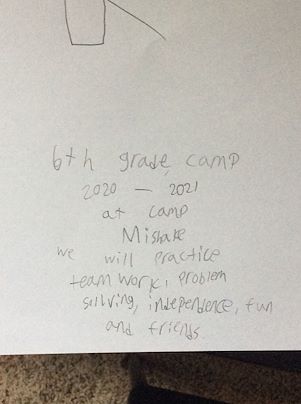 6th grade camp
2020 — 2021
at camp
Mishake
we will practice
team work, problem
sullving, independence, fun
and friends.